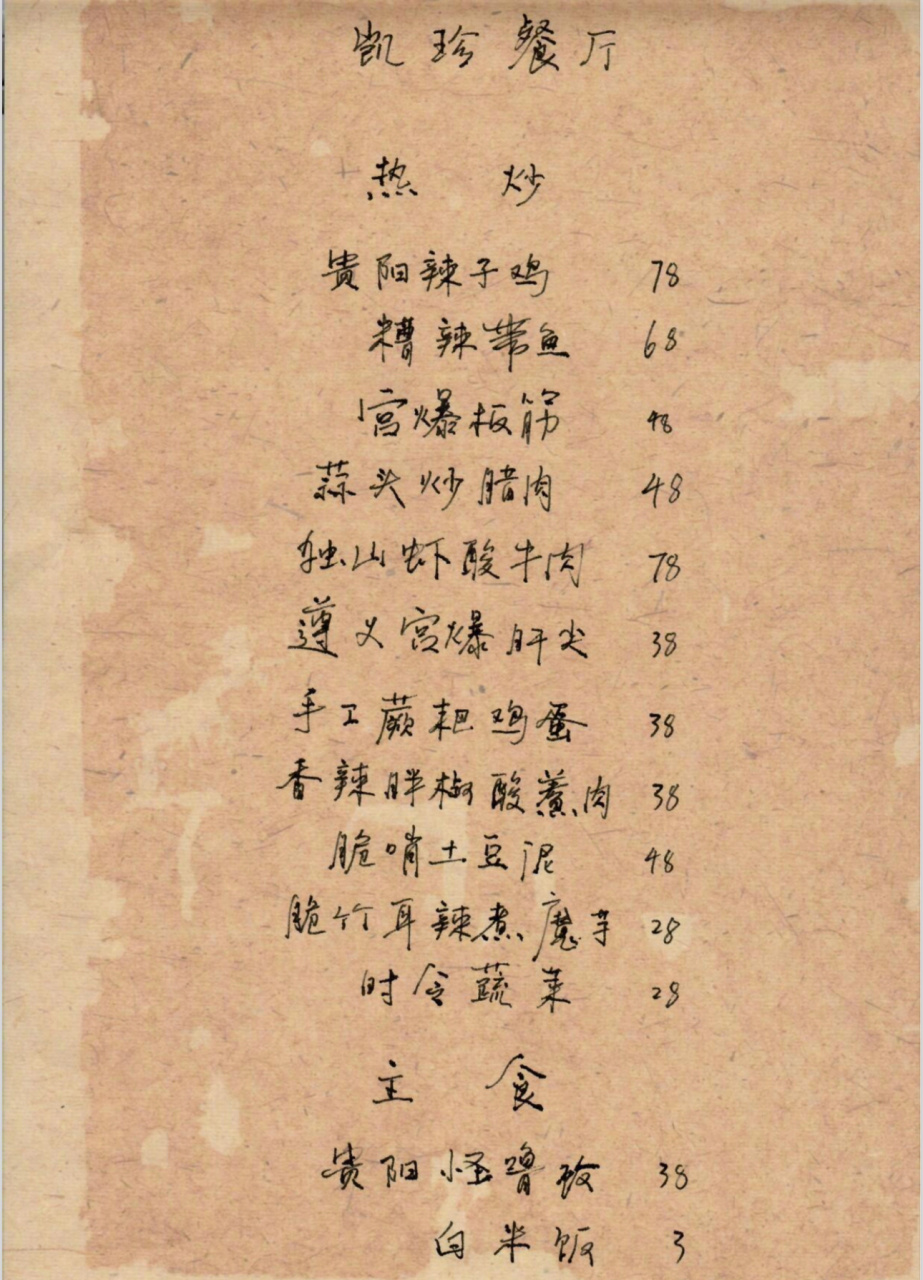 凯珍餐厅
热炒
贵阳辣子鸡 78
糟辣带鱼 68
宫爆板筋 48
蒜头炒腊肉 48
独山虾酸牛肉 78
遵义宫爆肝尖 38
手工蕨粑鸡蛋 38
香辣胖椒酸羹肉 38
脆哨土豆泥 48
脆竹耳辣煮魔芋 28
时令蔬菜 28
主食
贵阳怪噜饭 38
白米饭 3